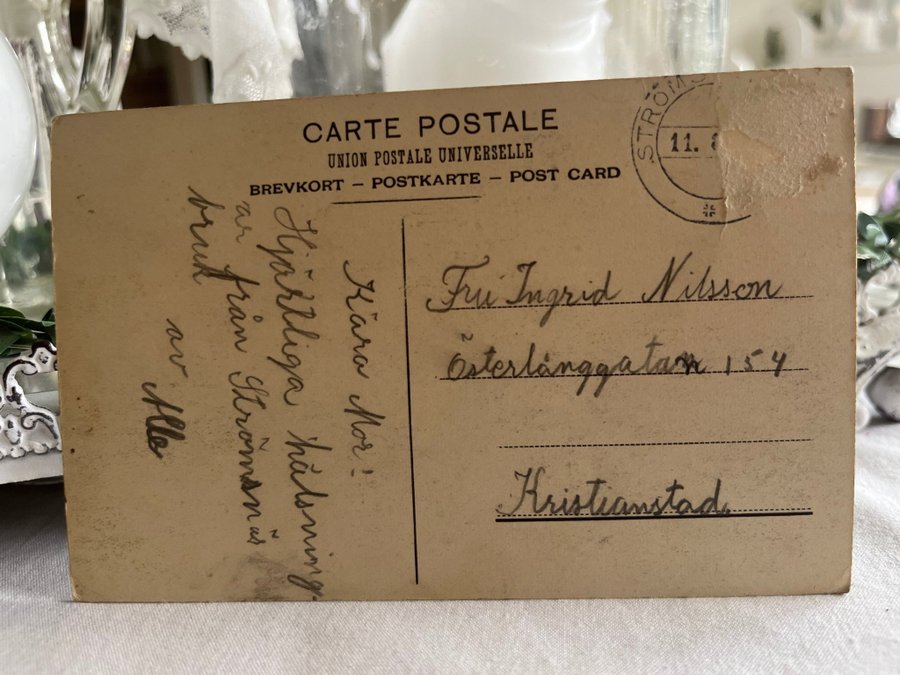 CARTE POSTALE
UNION POSTALE UNIVERSELLE
BREVKORT – POSTKARTE – POST CARD
STRÖMS
11. 8
Kära Mor!
Hjärtliga hälsning
ar från Strömsnäs
bruk
av Alla
Fru Ingrid Nilsson
Österlånggatan 154
Kristianstad.